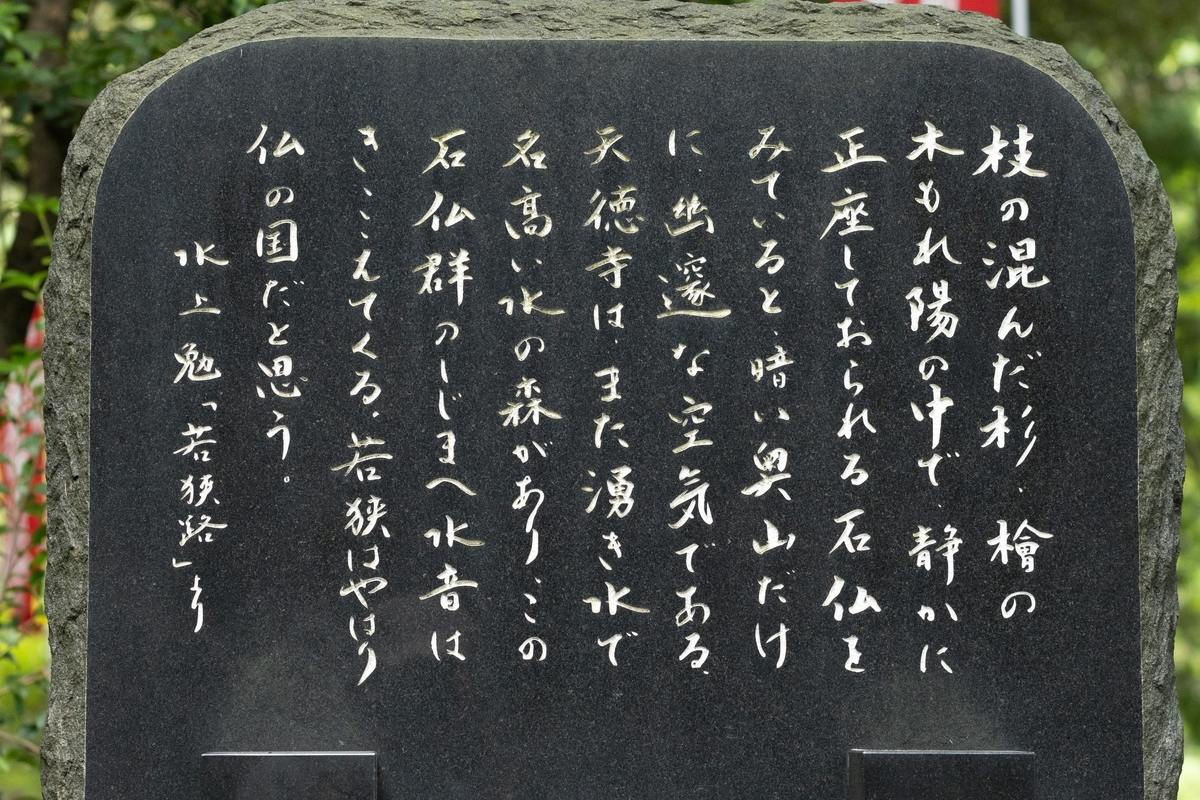 枝の混んだ杉、檜の
木もれ陽の中で、静かに
正座しておられる石仏を
みていると、暗い奥山だけ
に、幽邃な空気である、
天徳寺は、また湧き水で
名高い水の森があり、この
石仏群のしじまへ水音は
きこえてくる、若狭はやはり
仏の国だと思う。
水上勉「若狭路」より